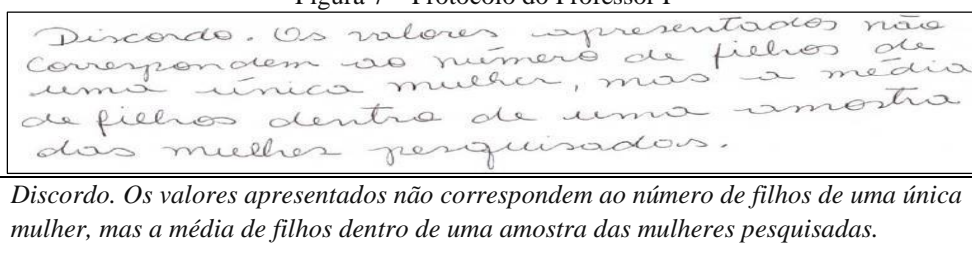 Figura 7 – Protocolo do Professor P
Discordo. Os valores apresentados não
correspondem ao número de filhos de
uma única mulher, mas a média
de filhos dentro de uma amostra
das mulheres pesquisadas.
Discordo. Os valores apresentados não correspondem ao número de filhos de uma única
mulher, mas a média de filhos dentro de uma amostra das mulheres pesquisadas.